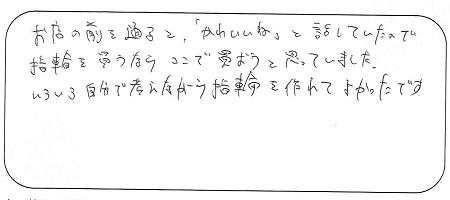 お店の前を通ると、「かわいいね」と話していたので
指輪を買うなら ここで買おうと思っていました。
いろいろ自分で考えながら指輪を作れてよかったです